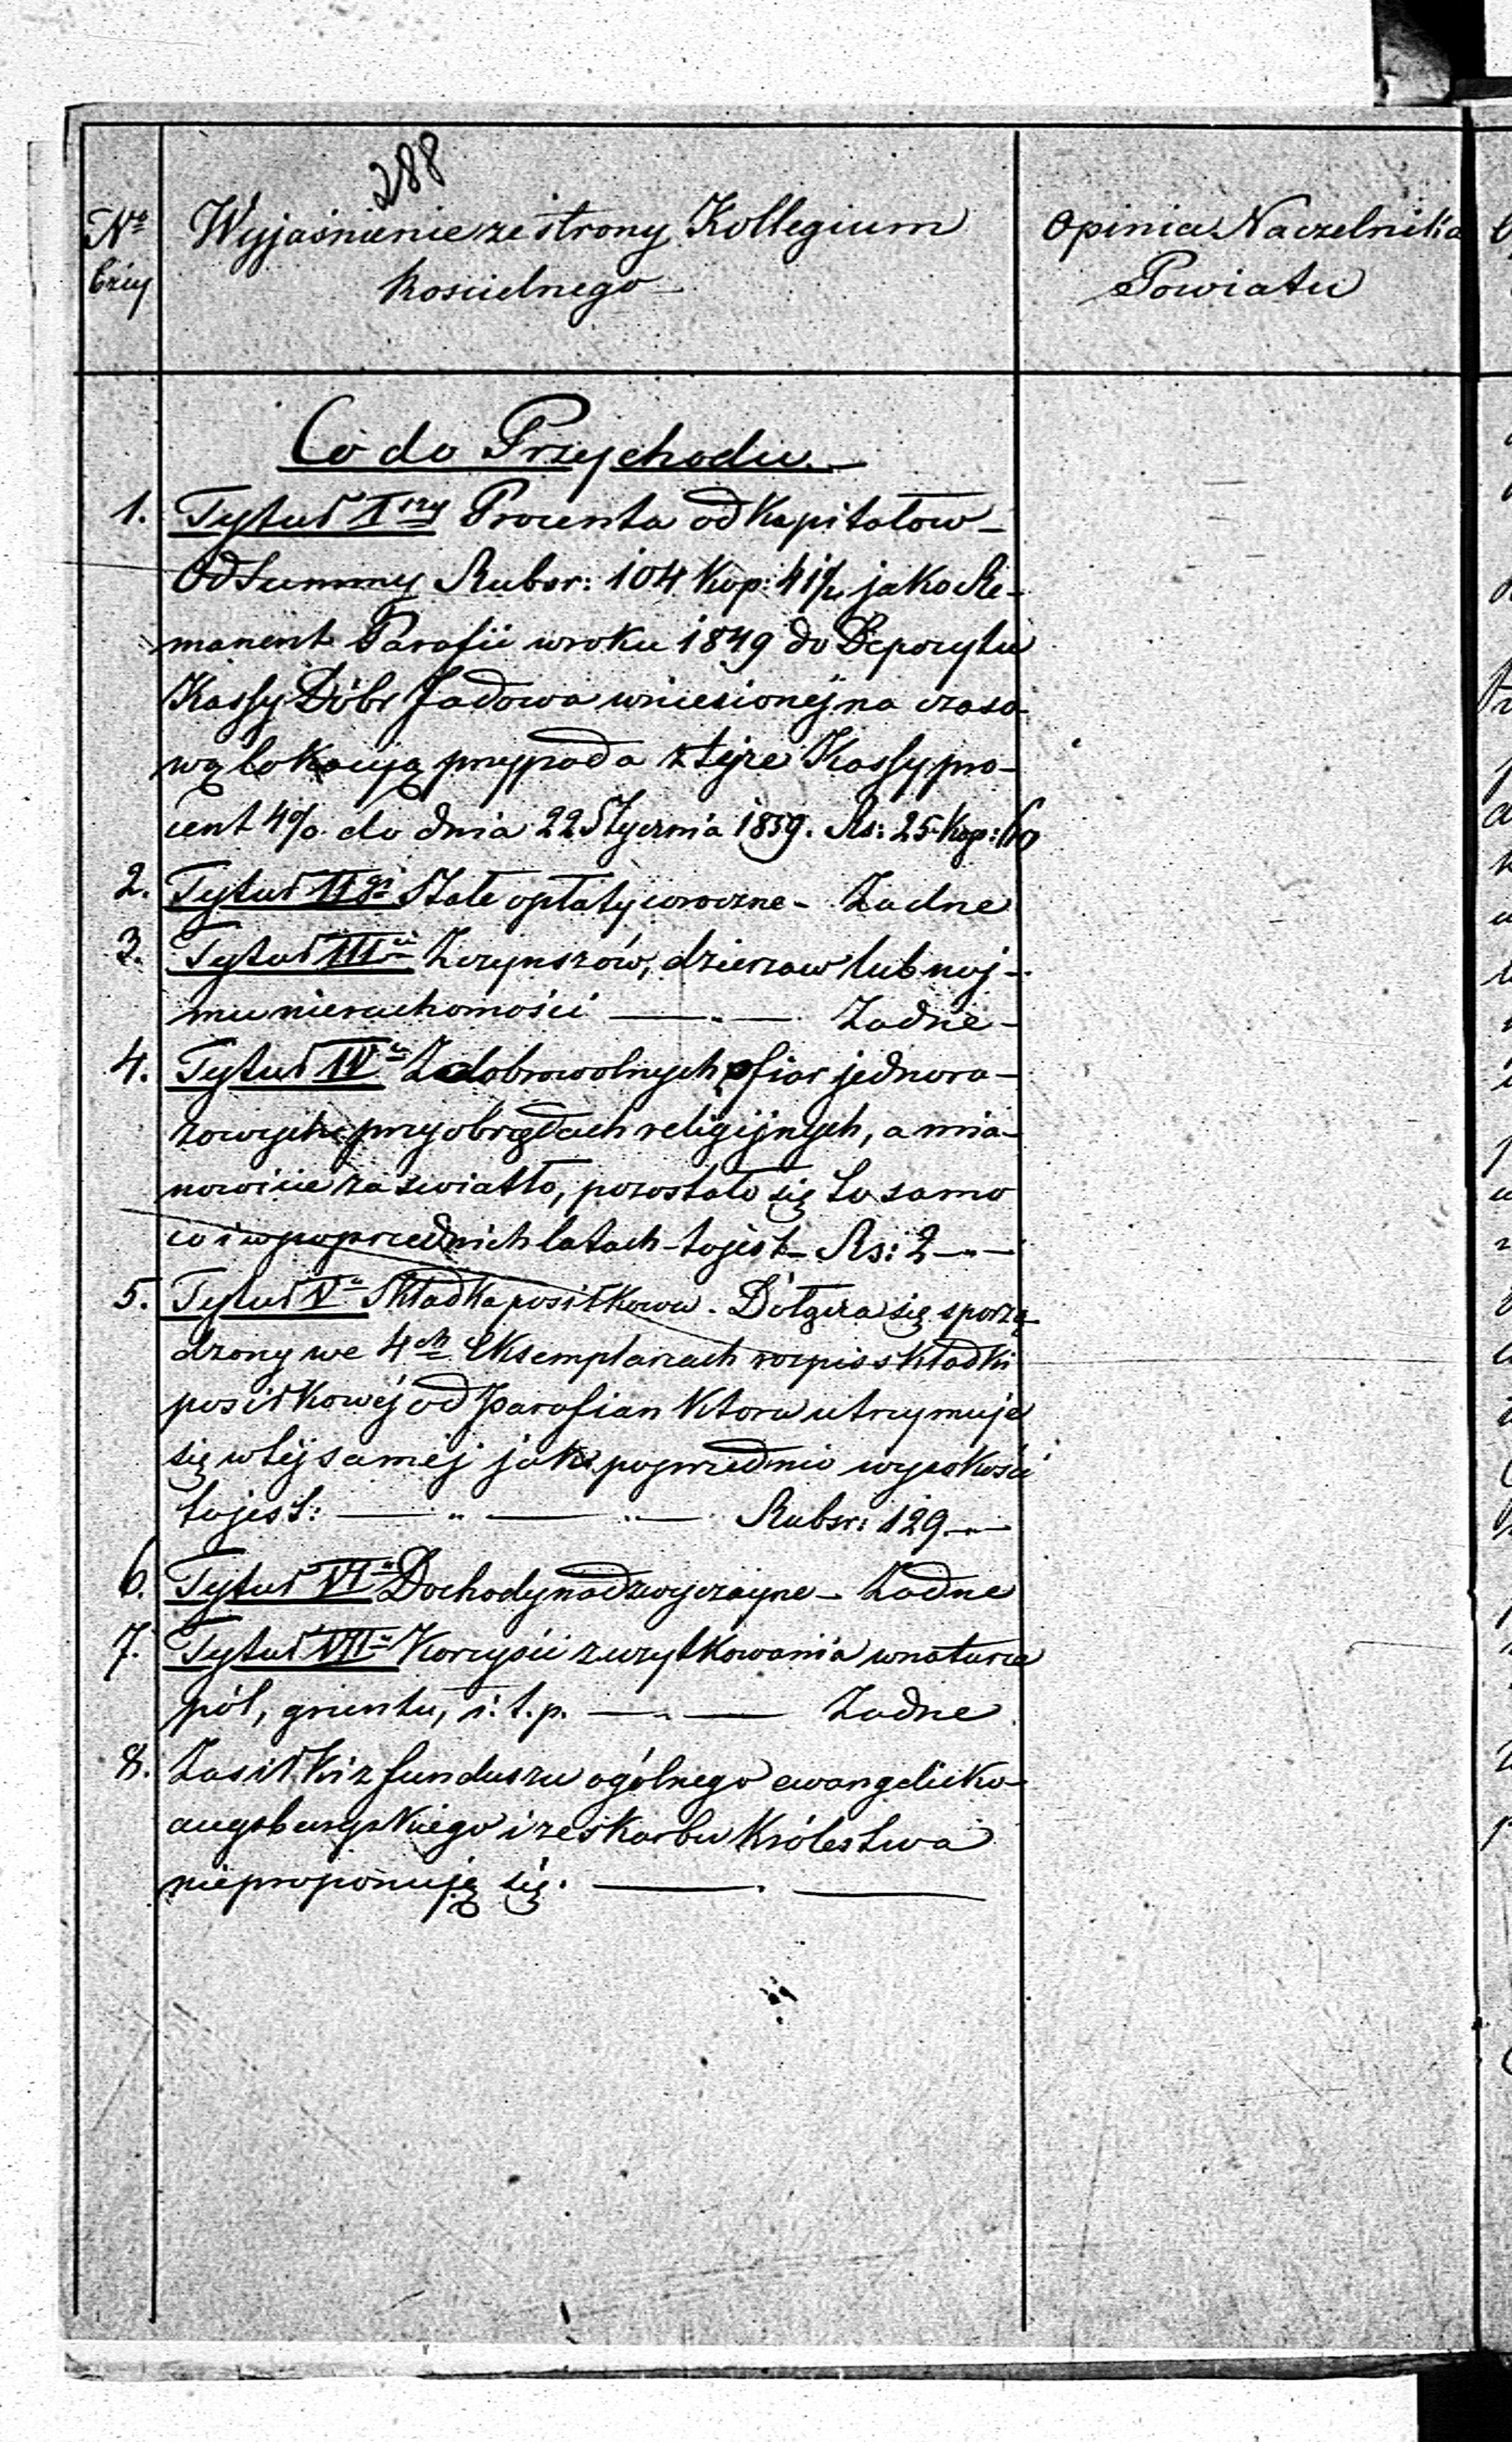 288
No bży
Wyjaśnienie ze strony Kollegium
Kościelnego
Opinia Naczelnika
Powiatu
Co do Przychodu
1. Tytuł Iszy Procenta od Kapitałow
Od Summy Rubsr: 104 Kop: 41½ jako Re-
manent Parafii w roku 1849 do Depozytu
Kassy Dóbr Jadowa wniesionej na czaso-
wą lokacyą przypada z tejże Kassy pro-
cent 4%. do dnia 22 Stycznia 1859. Rs: 25 Kop: 60
2. Tytuł IIgi Stałe opłaty coroczne - Żadne
3. Tytuł III Z czynszów, dzierzaw lub naj-
mu nieruchomości — „ — Żadne -
4. Tytuł IV Z dobrowolnych ofiar jednora-
zowych przy obrzędach religijnych, a mia-
nowicie za swiatło, pozostało się to samo
co i w poprzednich latach - to jest - Rs: 2 - „ -
5. Tytuł V Składka posiłkowa. Dołącza się sporzą-
dzony we 4ch Eksemplarzach rozpis składki
posiłkowéj od Parafian Ktora utrzymuje
się w téj saméj jak poprzednio wysokości
to jest: — „ — „ — Rubsr: 129 „ —
6. Tytuł VI Dochody nadzwyczayne - Żadne
7. Tytuł VII Korzyści z użytkowania w naturze
pól, gruntu, i. t. p. — „ — Żadne
8. Zasiłki z funduszu ogólnego ewangelicko-
augsburgskiego i ze skarbu Królestwa
nieproponują się. — . —